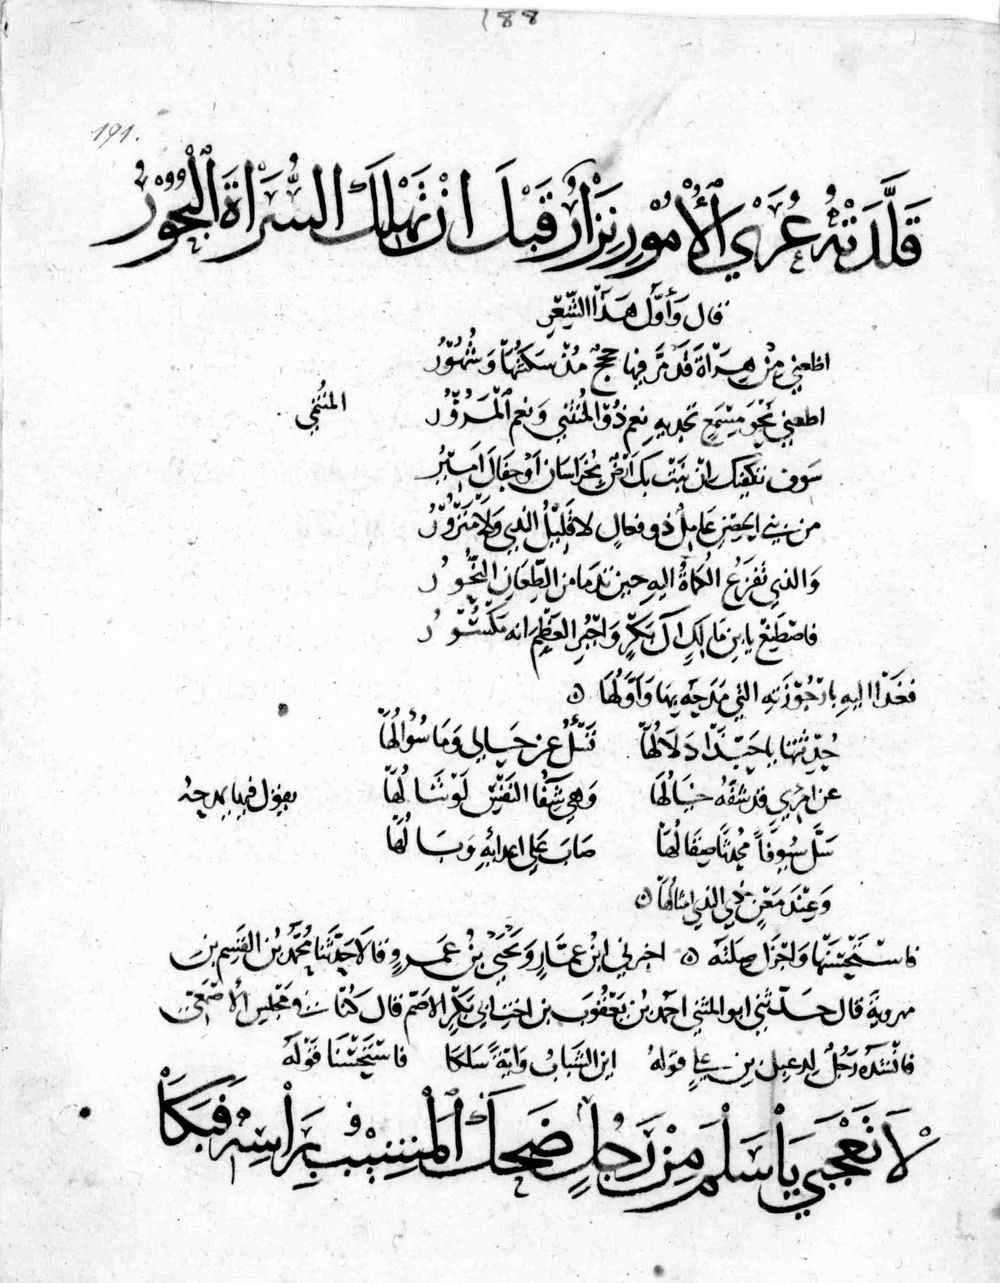 188
191.
قَلَّدَتْهُ عُرَى ٱلْأُمُوْرِ نِزَارٌ قَبْلَ انْ تَهْلِكَ السَّرَاةُ الْبُحُوْرُ
قال وَأَوَّل هَذَا الشِّعْرِ
اظعني مِنْ هَرَاةَ قَدْ مَرَّ فِيها حِجَجٌ مُذْ سَكَنْتُهَا وَشُهُوْرُ
اطعني نَحْوَ مِسْمَعٍ تَجِدِيهِ نِعْمَ ذُوْ الْمُنْثَنَى وَنِعْمَ الْمَزُوْرُ
المُنْتَمَى
سَوف تكفيك إن نَبَتْ بك أَرْضٌ بِخُرَاسَانَ أَوْ جَفَاكَ امِيْرُ
من بني الحِصْنِ عَامِلٌ ذو فعالٍ لا قَلِيْلُ النَّدى وَلَا مَنْزُوْرُ
وَالذي تَفْزَعُ الكُمَاةُ اليهِ حين تدما من الطِّعَانِ النُّحُوْرُ
فاصْطَنِعْ يا ابن مَالِكٍ آلَ بَكْرٍ وَاجْبُرِ العَظْمَ انه مَكْسُوْرُ
فغَدَا اليهِ بارْجُوْزَتِهِ التي مَدَحَهُ بِهَا وَاوَّلُهَا ۝
حُدِّثْتُهَا يا حَبَّذَا دَلَالُهَا تَسْأَلُ عن حَالِي وَمَا سُؤَالُهَا
عن امْرِئٍ قد شَفَّهُ خَيَالُهَا وَهْيَ شِفَا النَّفْسِ لَوْ تُنَالُهَا
يقول فيها يمدحه
سَلَّ سُيُوْفًا مُحْدَثًا صِقَالُهَا صَابَ عَلَى اعدائِهِ وَبَالُهَا
وَعِنْدَ مَعْنٍ ذِي النَّدَى امثالُهَا ۝
فاسْتَحْسَنَهَا وَاجْزَلَ صِلَتَهُ ۝ اخبرني ابنُ عمَّارٍ وَيَحْيَى بنُ عَمْرٍو قالا حَدَّثَنَا مُحَمَّدُ بنُ القَسِمِ بن
مهروية قال حَدَّثَنِي ابو المثنى احمدُ بنُ يَعْقُوبَ بن اخت ابي بَكْرٍ الاصَمّ قال كُنَّا في مَجْلِسِ الْأَصْمَعِي
فانشدهُ رَجُلٌ لِدعبِل بن عليٍّ قولهُ اين الشَّبَابُ وَايَّةً سَلَكَا فاسْتَحْسَنَّا قَوْلَهُ
لَا تَعْجَبِي يَا سَلْمَ مِنْ رَجُلٍ ضَحِكَ ٱلْمَشِيْبُ بِرَاسِهِ فَبَكَا